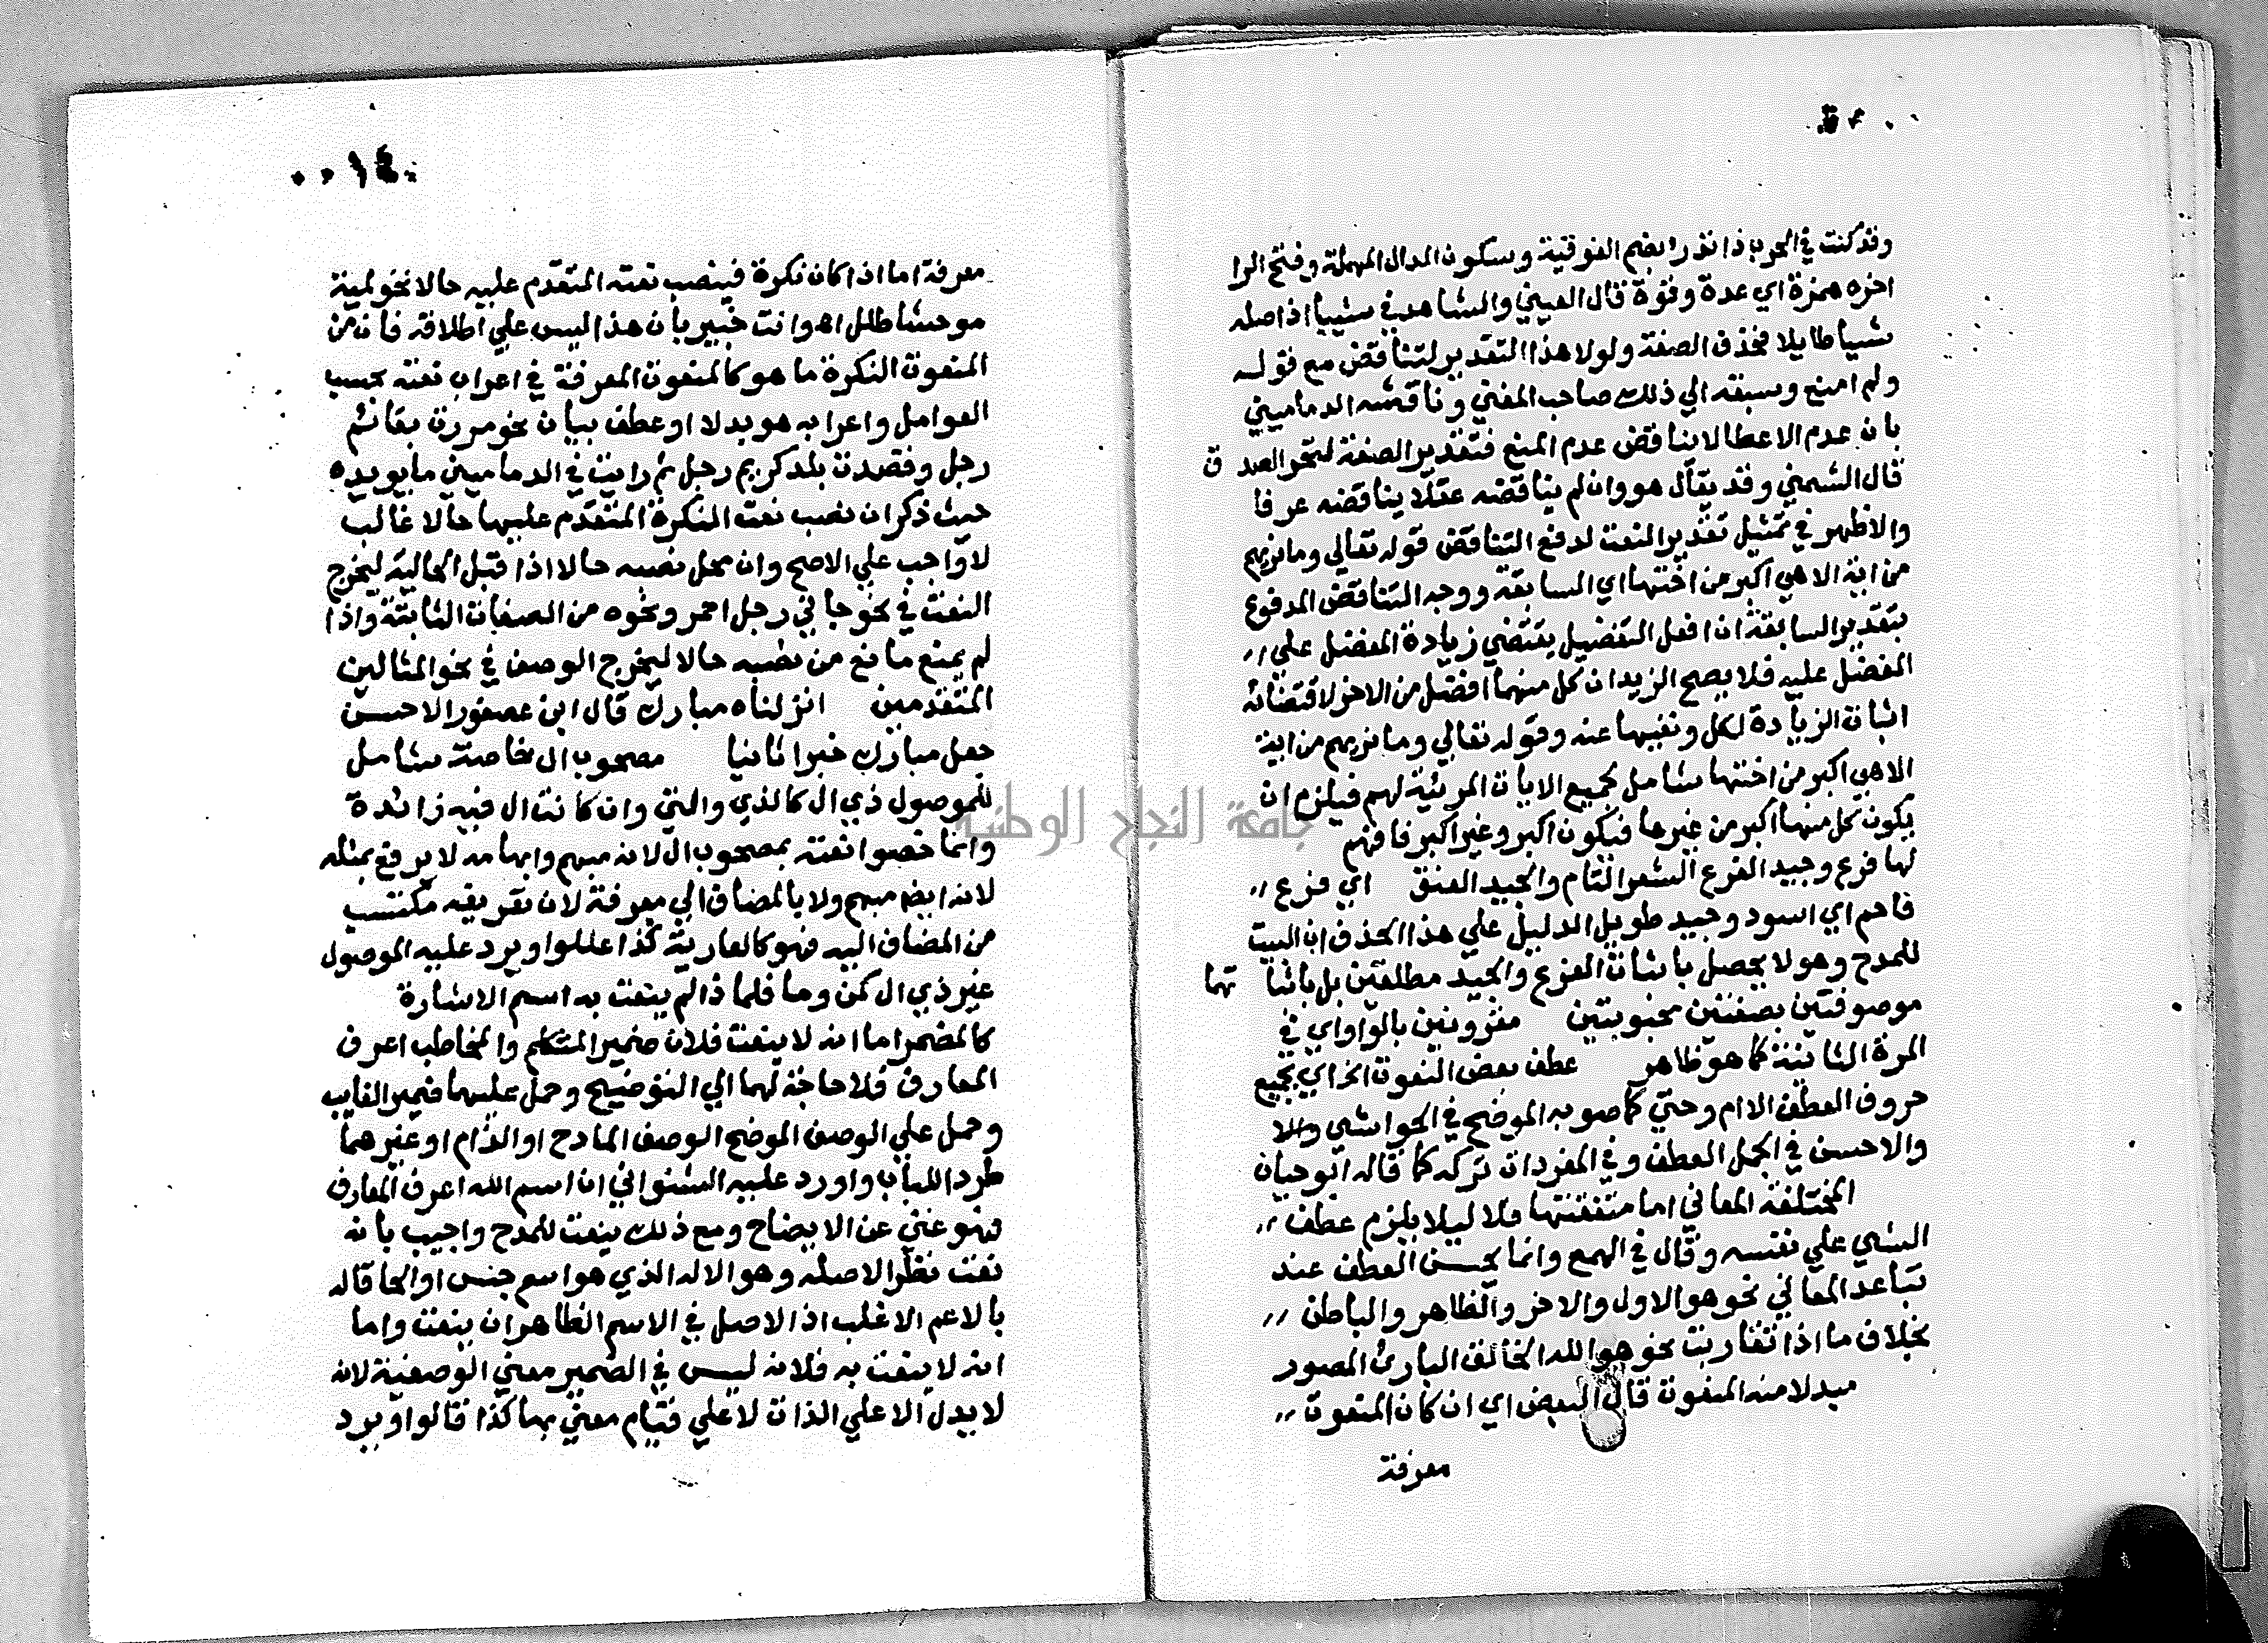 وقد كنت في الحرب ذا تدرا بضم الفوقية وسكون الدال المهملة وفتح الرا
اخره همزة اي عدة وقوة قال العيني والشاهد في شييا اذ اصله
شييا طايلا فحذف الصفة ولولا هذا التقدير لتناقض مع قوله
ولم امنع وسبقه الي ذلك صاحب المغني وناقشه الدماميني
بان عدم الاعطا لا يناقض عدم المنع فتقدير الصفة لتحر الصدق
قال الشمني وقد يقال هو وان لم يناقضه عقلا يناقضه عرفا
والاظهر في تمثيل تقدير النعت لدفع التناقض قوله تعالي وما نريهم
من اية الا هي اكبر من اختها اي السابقة ووجه التناقض المدفوع
بتقدير السابقة ان افعل التفضيل يقتضي زيادة المفضل علي
المفضل عليه فلا يصح الزيدان كل منهما افضل من الاخر لاقتضائه
اثبات الزيادة لكل ونفيها عنه وقوله تعالي وما نريهم من اية
الا هي اكبر من اختها شامل لجميع الايات المرئية لهم فيلزم ان
يكون كل منها اكبر من غيرها فيكون اكبر وغير اكبر فافهم
لها فرع وجيد الفرع الشعر التام والجيد العنق اي فرع
فاحم اي اسود وجيد طويل الدليل علي هذا الحذف ان البيت
للمدح وهو لا يحصل باثبات الفرع والجيد مطلقين بل باثباتهما
موصوفتين بصفتين محبوبتين مقرونين بالواو اي في
المرة الثانية كما هو ظاهر عطف بعض النعوت الخ اي بجميع
حروف العطف الا ام وحتي كما صوبه الموضح في الحواشي والا
والاحسن في الجمل العطف وفي المفردات تركه كما قاله ابو حيان
المختلفة المعاني اما متفقتها فلا ليلا يلزم عطف
الشي علي نفسه وقال في الهمع وانما يحسن العطف عند
تباعد المعاني نحو هو الاول والاخر والظاهر والباطن
بخلاف ما اذا تقاربت نحو هو الله الخالق البارئ المصور
مبدلا منه المنعوت قال البعض اي ان كان المنعوت
معرفة
معرفة اما اذا كان نكرة فينصب نعته المتقدم عليه حالا نحو لمية
موحشا طلل اه وانت خبير بان هذا ليس علي اطلاقه فان من
المنعوت النكرة ما هو كالمنعوت المعرفة في اعراب نعته بحسب
العوامل واعرابه هو بدلا او عطف بيان نحو مررت بقائم
رجل وقصدت بلد كريم رجل ثم رايت في الدماميني ما يويده
حيث ذكر ان نصب نعت النكرة المتقدم عليها حالا غالب
لا واجب علي الاصح وان محل نصبه حالا اذا قبل الحالية ليخرج
النعت في نحو جاني رجل احمر ونحوه من الصفات الثابتة واذا
لم يمنع مانع من نصبه حالا ليخرج الوصف في نحو المثالين
المتقدمين انزلناه مبارك قال ابن عصفور الاحسن
جعل مبارك خبرا ثانيا مصحوب ال خاصة شامل
للموصول ذي ال كالذي والتي وان كانت ال فيه زائدة
وانما خصوا نعته بمصحوب ال لانه مبهم وابهامه لا يرفع بمثله
لانه ايضا مبهم ولا بالمضاف الي معرفة لان تعريفه مكتسب
من المضاف اليه فهو كالعارية كذا عللوا ويرد عليه الموصول
غير ذي ال كمن وما فلما ذا لم ينعت به اسم الاشارة
كالمضمر اما انه لا ينعت فلان ضمير المتكلم والمخاطب اعرف
المعارف فلا حاجة لهما الي التوضيح وحمل عليهما ضمير الغايب
وحمل علي الوصف الموضح الوصف المادح او الذام او غيرهما
طردا للباب واورد عليه الشنواني ان اسم الله اعرف المعارف
فهو غني عن الايضاح ومع ذلك ينعت للمدح واجيب بانه
نعت نظرا لاصله وهو الاله الذي هو اسم جنس او الحاقا له
بالاعم الاغلب اذ الاصل في الاسم الظاهر ان ينعت واما
انه لا ينعت به فلانه ليس في الضمير معني الوصفية لانه
لا يدل الا علي الذات لا علي قيام معني بها كذا قالوا ويرد
جامعة النجاح الوطنية